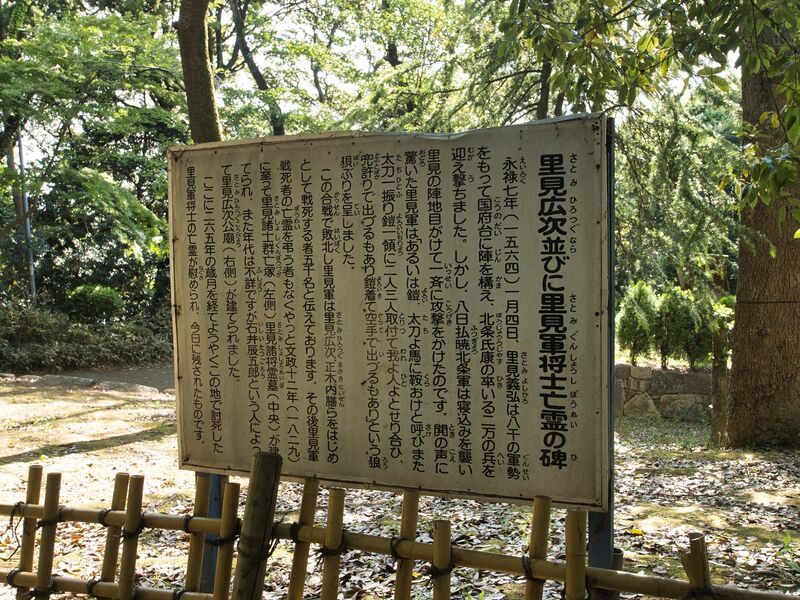 里見広次並びに里見軍将士亡霊の碑
永禄七年（一五六四）一月四日、里見義弘は八千の軍勢
をもって国府台に陣を構え、北条氏康の率いる二万の兵を
迎え撃ちました。しかし、八日払暁北条軍は寝込みを襲い
里見の陣地目がけて一斉に攻撃をかけたのです。鬨の声に
驚いた里見軍はあるいは鎧、太刀よ馬に鞍おけと呼びまた
太刀一振り鎧一領に二人三人取付て我よ人よとせり合ひ、
兜許りで出づるもあり鎧着て空手で出づるもありという狼
狽ぶりを呈しました。
この合戦で敗北し里見軍は里見広次、正木内膳らをはじめ
として戦死する者五千名と伝えております。その後里見軍
戦死者の亡霊を弔う者もなくやっと文政十二年（一八二九）
に至って里見諸士群亡塚（左側）里見諸将霊墓（中央）が建
てられ、また年代は不詳ですが石井辰五郎という人によっ
て里見広次公廟（右側）が建てられました。
ここに二六五年の歳月を経てようやくこの地で討死した
里見軍将士の亡霊が慰められ、今日に残されたものです。